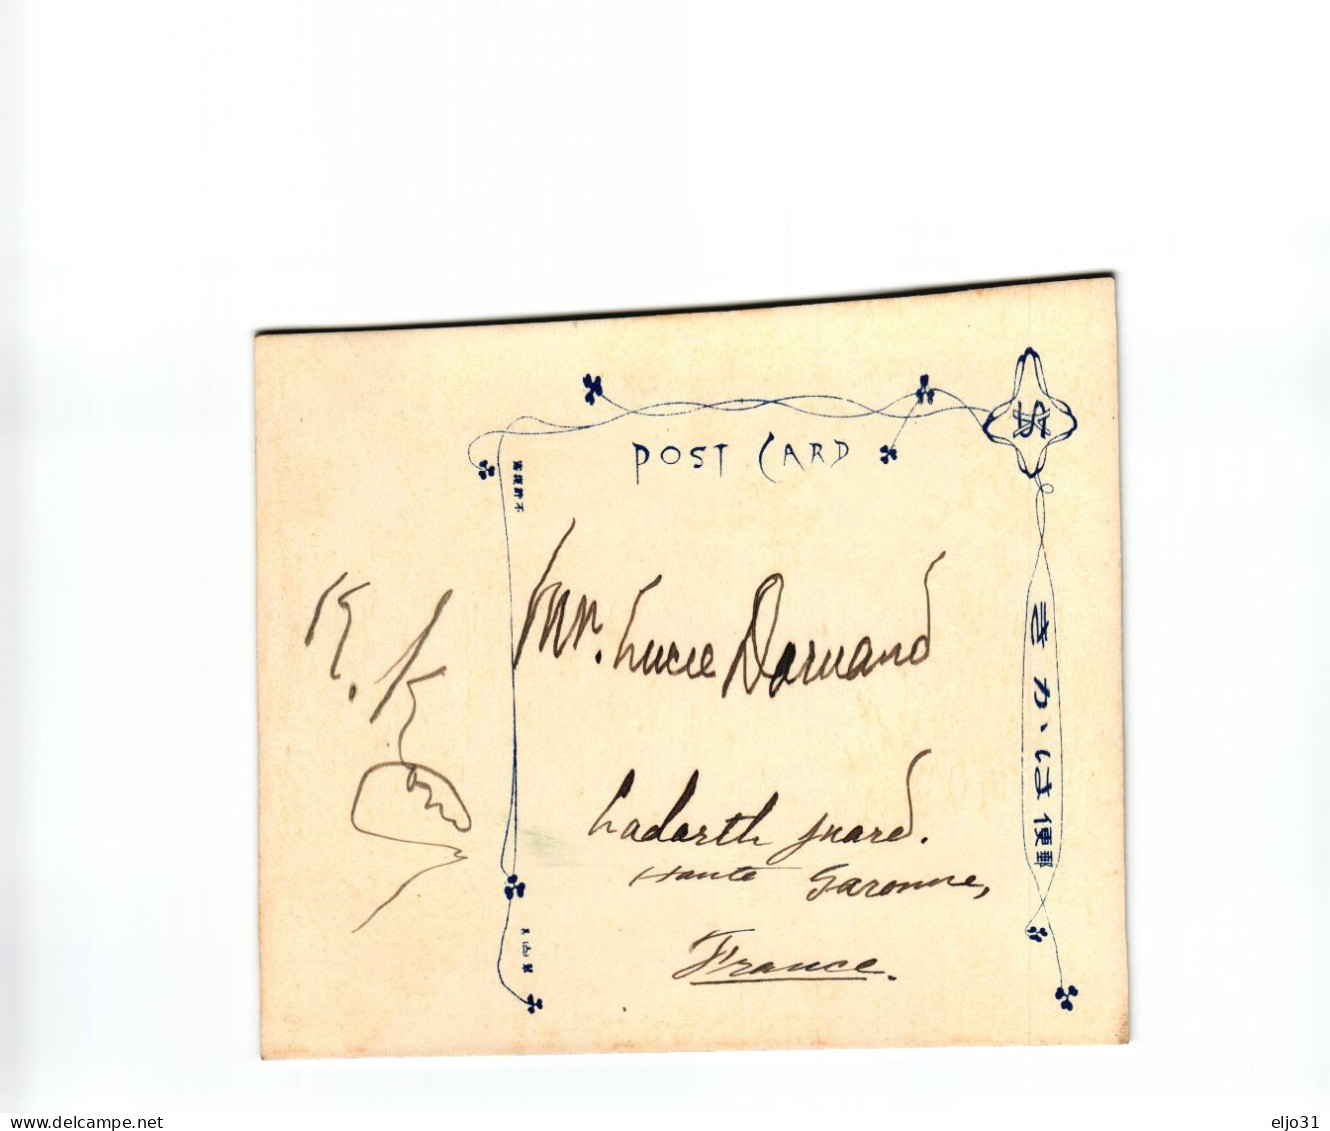 POST CARD
不許複製
きかゝは便郵
Mr. Lucie Darnand
Ladarth juard.
Haute Garonne,
France.
K. K
www.delcampe.net
eljo31